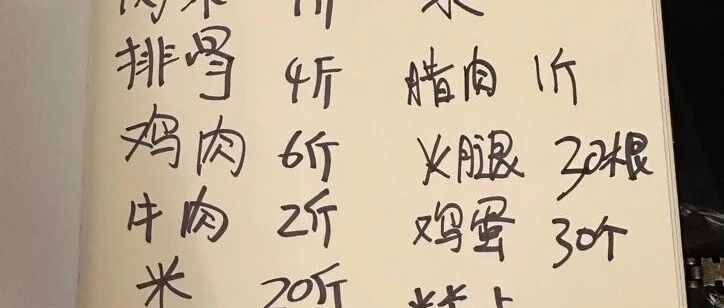 排骨 4斤 腊肉 1斤
鸡肉 6斤 火腿 30根
牛肉 2斤 鸡蛋 30个
米 20斤